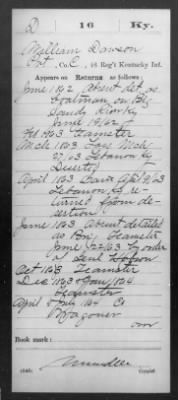 D 16 Ky.
William Dawson
Pvt, Co. C, 16 Reg't Kentucky Inf.
Appears on Returns as follows:
June 1862 Absent det. as
boatman on Big
Sandy River Ky
June 18/62
Feb 1863 Teamster
Mch 1863 Loss Mch
27, 63 Lebanon Ky
Deserted
April 1863 Gain Apl 63
Lebanon, Ky re-
turned from de-
sertion
June 1863 Absent detailed
as Brig Teamster
June 22/63 by order
of Genl Hobson
Oct 1863 Teamster
Dec 1863 & Jan 1864
Teamster
April & July 1864 Co
Wagoner
Book mark:
(546) Copyist.